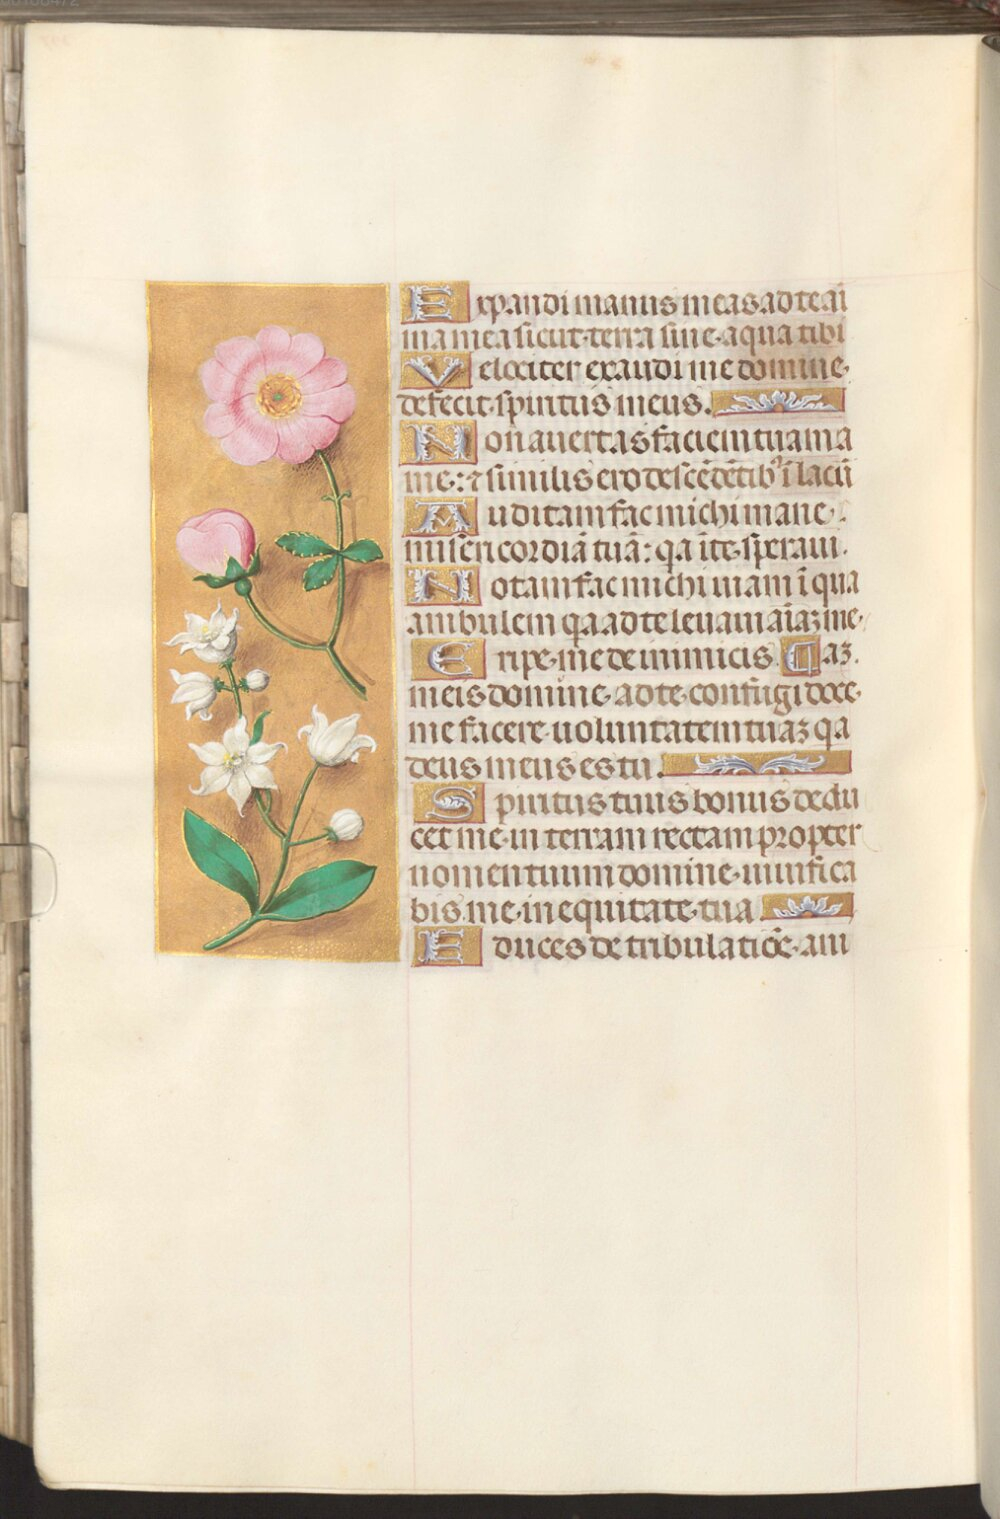 Expandi manus meas ad te ai
ma mea sicut terra sine aqua tibi
Velociter exaudi me domine
defecit spiritus meus.
Non avertas faciem tuam a
me: ⁊ similis ero descēdētib' ī lacū
Auditam fac michi mane
misericordiā tuā: qa ī te speravi.
Notam fac michi viam ī qua
ambulem qa ad te levavi aīaꝫ me
Eripe me de inimicis
meis domine ad te confugi doce
me facere voluntatem tuaꝫ qa
deus meus es tu.
Spiritus tuus bonus dedu
cet me in terram rectam propter
nomen tuum domine vivifica
bis me in equitate tua
Educes de tribulatiōe ani